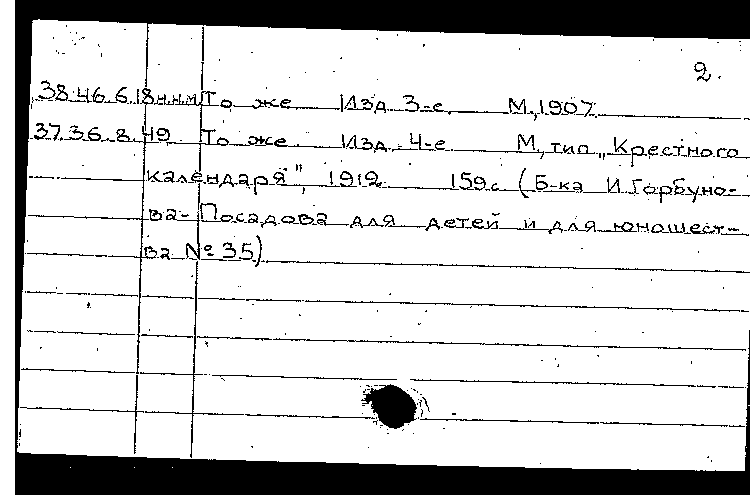 2.
38.46.6.18н.н.м То же Изд 3-е М, 1907.
37.36.8.49 То же Изд. 4-е М, тип „Крестного
календаря", 1912 159с (Б-ка И Горбуно-
ва-Посадова для детей и для юношест-
ва № 35)